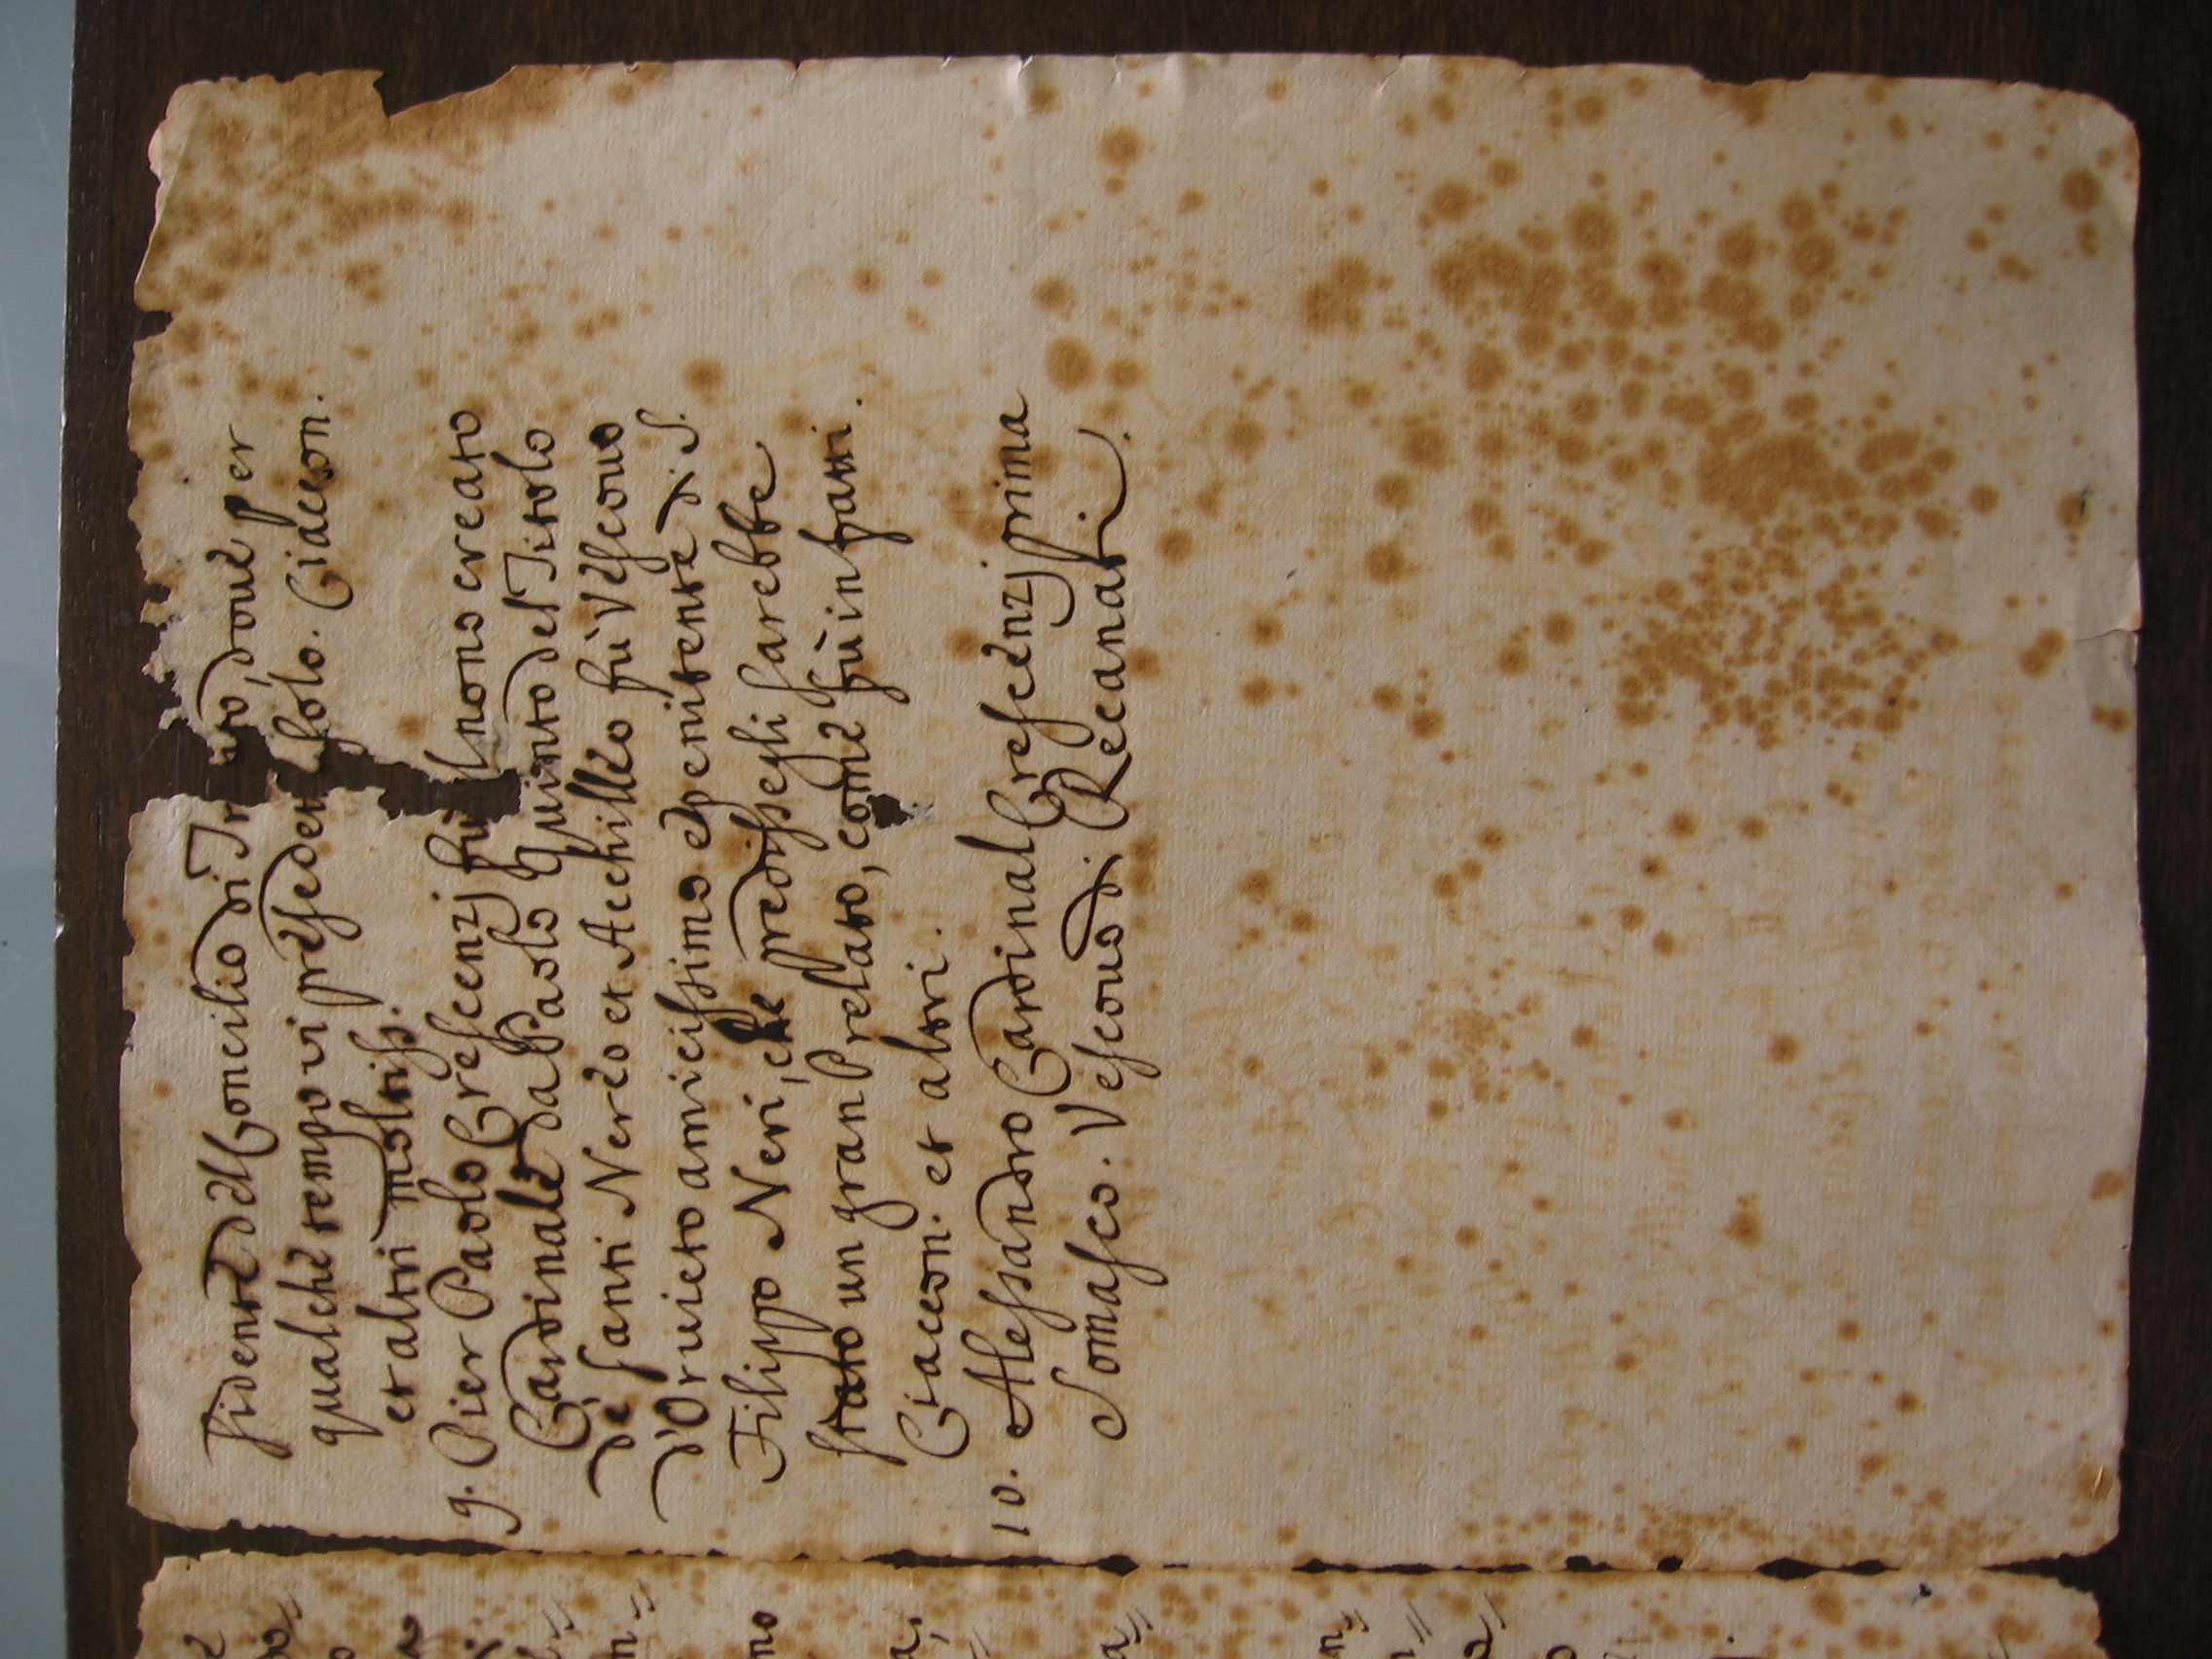 sidente del Concilio di Tr nto, doue per
qualche tempo vi presedet solo. Ciaccon.
et altri moltiss.
9. Pier Paolo Crescenzj fù nono creato
Cardinale da Paolo Quinto del Titolo
de Santi Nereo et Acchilleo fù Vescouo
d'Oruieto amicissimo e penitente di S.
Filippo Neri, che predissegli sarebbe
stato un gran Prelato, come fù in fatti.
Ciaccon. et altri.
10. Alessandro Cardinal Crescenzj prima
Somasco. Vescouo di Recanati.